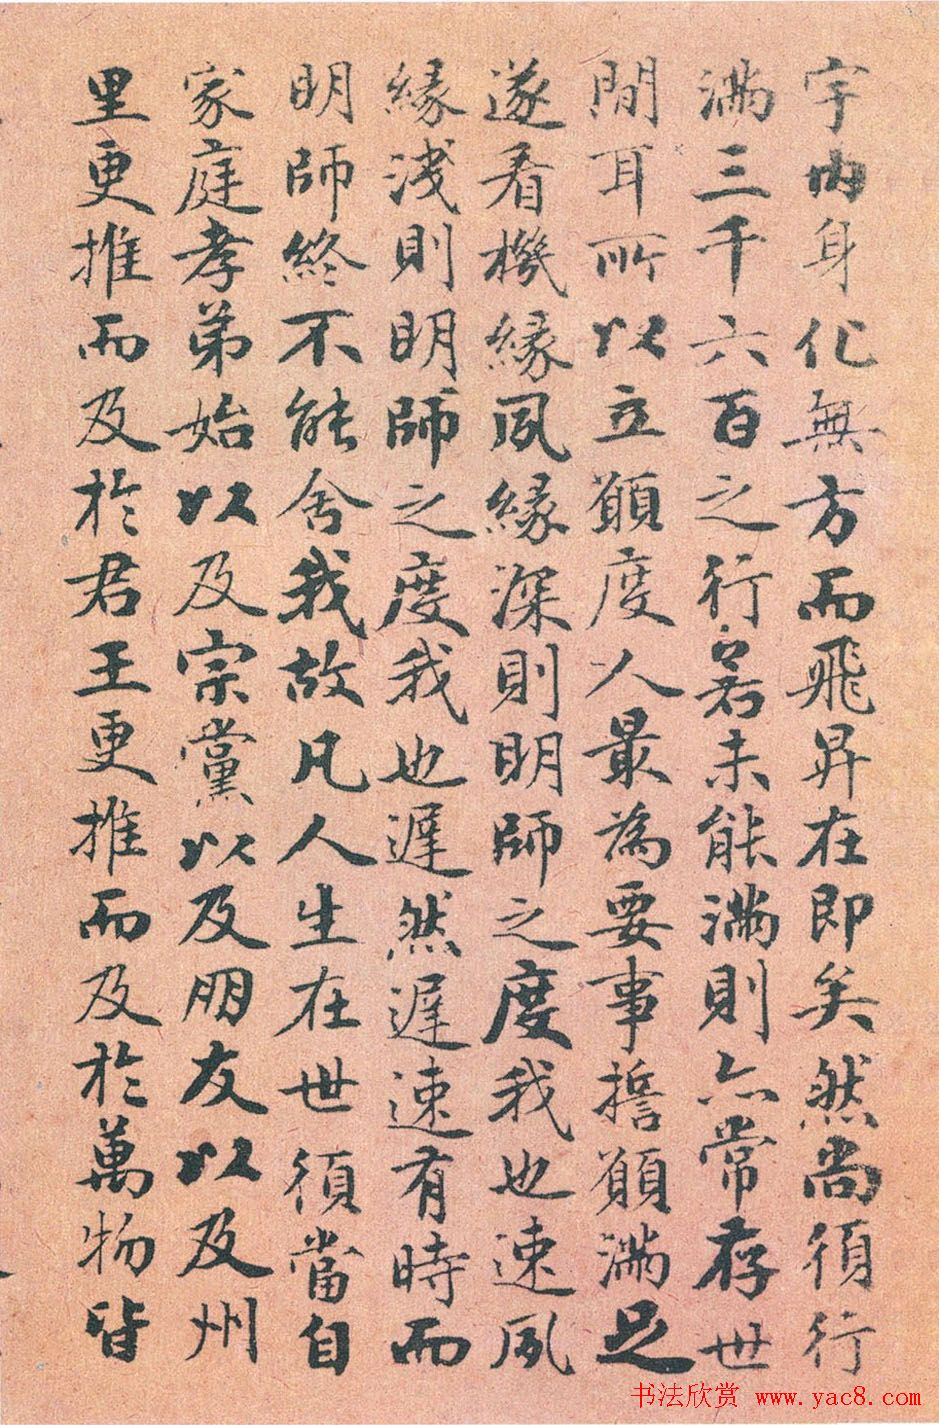 宇内身化無方而飛昇在即矣然尚須行
滿三千六百之行若未能滿則亦常存世
間耳所以立願度人最為要事誓願滿足
遂看機緣夙緣深則明師之度我也速夙
緣淺則明師之度我也遲然遲速有時而
明師終不能舍我故凡人生在世須當自
家庭孝弟始以及宗黨以及朋友以及州
里更推而及於君王更推而及於萬物皆
书法欣赏 www.yac8.com